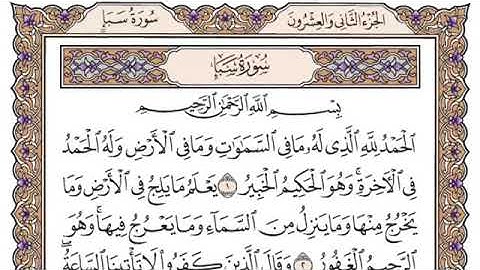 الجزء الثاني والعشرون
سورة سبإ
سُورَةُ سَبَإٍ
بِسْمِ ٱللَّهِ ٱلرَّحْمَٰنِ ٱلرَّحِيمِ
ٱلْحَمْدُ لِلَّهِ ٱلَّذِى لَهُۥ مَا فِى ٱلسَّمَٰوَٰتِ وَمَا فِى ٱلْأَرْضِ وَلَهُ ٱلْحَمْدُ
فِى ٱلْءَاخِرَةِ ۚ وَهُوَ ٱلْحَكِيمُ ٱلْخَبِيرُ ١ يَعْلَمُ مَا يَلِجُ فِى ٱلْأَرْضِ وَمَا
يَخْرُجُ مِنْهَا وَمَا يَنزِلُ مِنَ ٱلسَّمَآءِ وَمَا يَعْرُجُ فِيهَا ۚ وَهُوَ
ٱلرَّحِيمُ ٱلْغَفُورُ ٢ وَقَالَ ٱلَّذِينَ كَفَرُوا۟ لَا تَأْتِينَا ٱلسَّاعَةُ ۖ